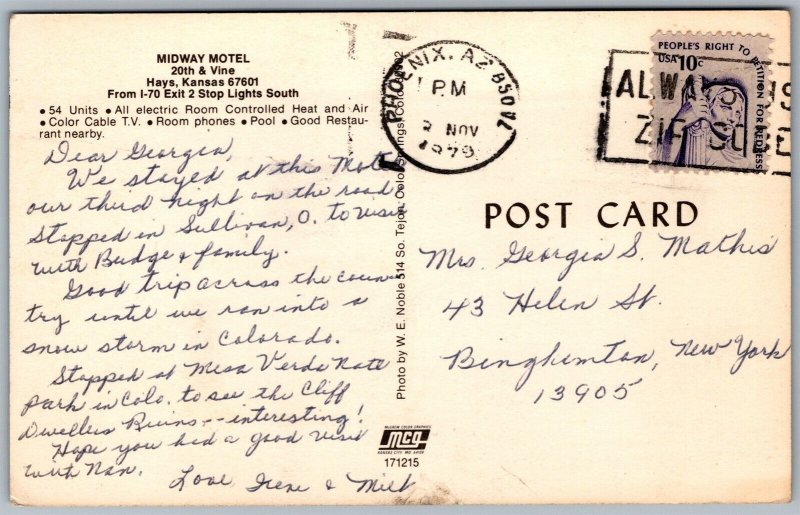 MIDWAY MOTEL
20th & Vine
Hays, Kansas 67601
From I-70 Exit 2 Stop Lights South
• 54 Units • All electric Room Controlled Heat and Air
• Color Cable T.V. • Room phones • Pool • Good Restau-
rant nearby.
Dear Georgia,
We stayed at this Motel
our third night on the road
Stopped in Sullivan, O. to visit
with Budge & family.
Good trip across the coun-
try until we ran into a
snow storm in Colorado.
Stopped at Mesa Verde Natl
Park in Colo. to see the Cliff
Dwellers Ruins -- interesting!
Hope you had a good visit
with Nan.
Love Irene & Milt
Photo by W. E. Noble 514 So. Tejon, Colo. Springs, Colo.
McGREW COLOR GRAPHICS
mcg
KANSAS CITY, MO. 64108
171215
PHOENIX, AZ 850
PM
2 NOV
1979
ALWAYS US
ZIP CODE
PEOPLE'S RIGHT TO PETITION FOR REDRESS
USA 10c
POST CARD
Mrs. Georgia S. Mathis
43 Helen St.
Binghimton, New York
13905